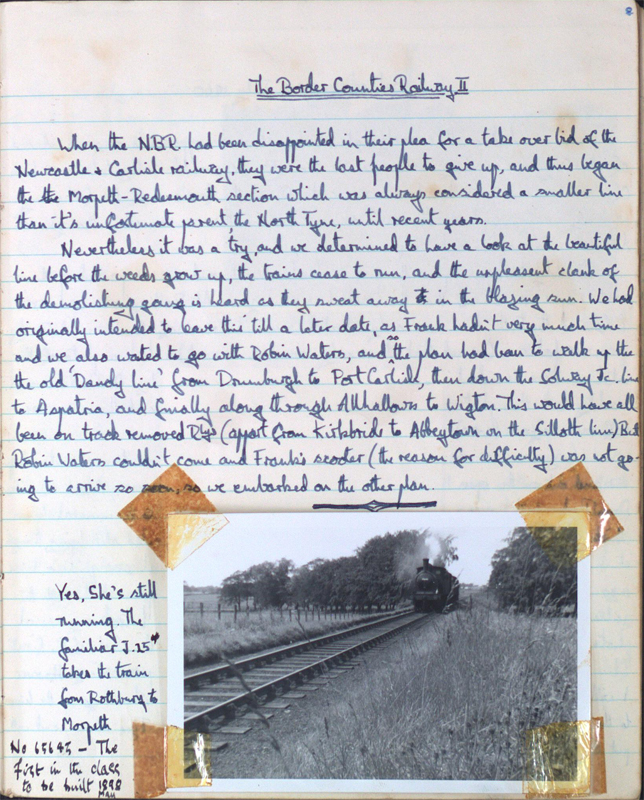 8
The Border Counties Railway II
When the NBR had been disappointed in their plea for a take over bid of the
Newcastle & Carlisle railway, they were the last people to give up, and thus began
the the Morpeth-Redesmouth section which was always considered a smaller line
than it's unfortunate parent, the North Tyne, until recent years.
Nevertheless it was a try, and we determined to have a look at the beautiful
line before the weeds grow up, the trains cease to run, and the unpleasent clank of
the demolishing gang is heard as they sweat away in the blazing sun. We had
originally intended to leave this till a later date, as Frank hadn't very much time
and we also wated to go with Robin Waters, and so the plan had been to walk up the
the old 'Dandy line' from Drumburgh to Port Carlisle, then down the Solway Jc. line
to Aspatria, and finally along through Allhallows to Wigton. This would have all
been on track removed Rlys (appart from Kirkbride to Abbeytown on the Silloth line) But
Robin Waters couldn't come and Frank's scooter (the reason for difficulty) was not go-
ing to arrive so soon, so we embarked on the other plan.
Yes, She's still
running. The
familiar J.25
takes the train
from Rothbury to
Morpeth
No 65645 - The
first in the class
to be built 1898
May